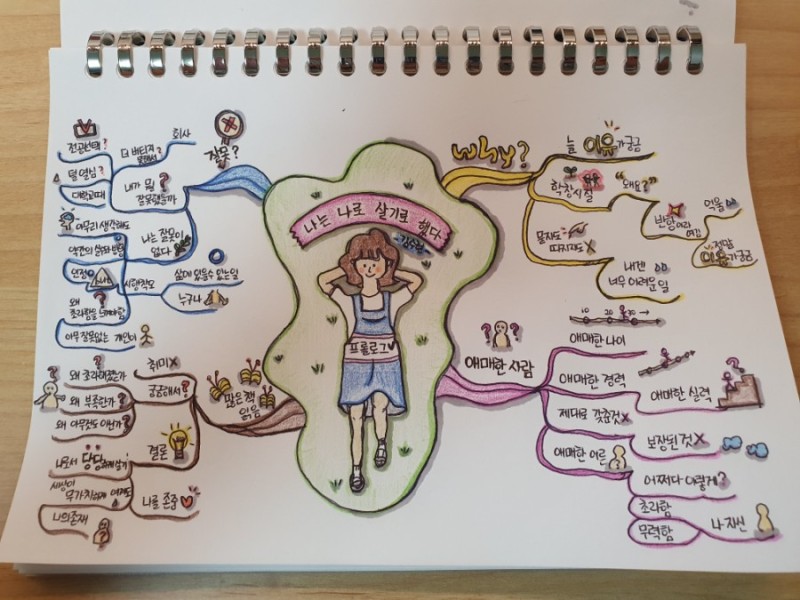 나는 나로 살기로 했다
-김수현
프롤로그
WHY?
늘 이유가 궁금
학창시절
"왜요?"
반항이라 여김
억울
정말 이유가 궁금
묻지도 따지지도 X
내겐 너무 어려운 일
애매한 사람
10 20 30
애매한 나이
애매한 경력
애매한 실력
제대로 갖춘것 X
보장된것 X
애매한 어른
어쩌다 이렇게?
초라함
무력함
나 자신
많은 책 읽음
취미 X
궁금해서?
왜 초라해졌는가
왜 부족한가?
왜 아무것도 아닌가?
결론
나로서 당당하게 살기
나를 존중
세상이 무가치하게 여겨도
나의존재
잘못?
회사
더 버티지 못해서?
내가 뭘 잘못했을까
전공선택?
덜 열심?
대학교때
나는 잘못이 없다
아무리 생각해도
약간의 실수
언정
시행착오
삶에 있을수 있는일
누구나
왜 초라함을 느껴야함
아무 잘못없는 개인이